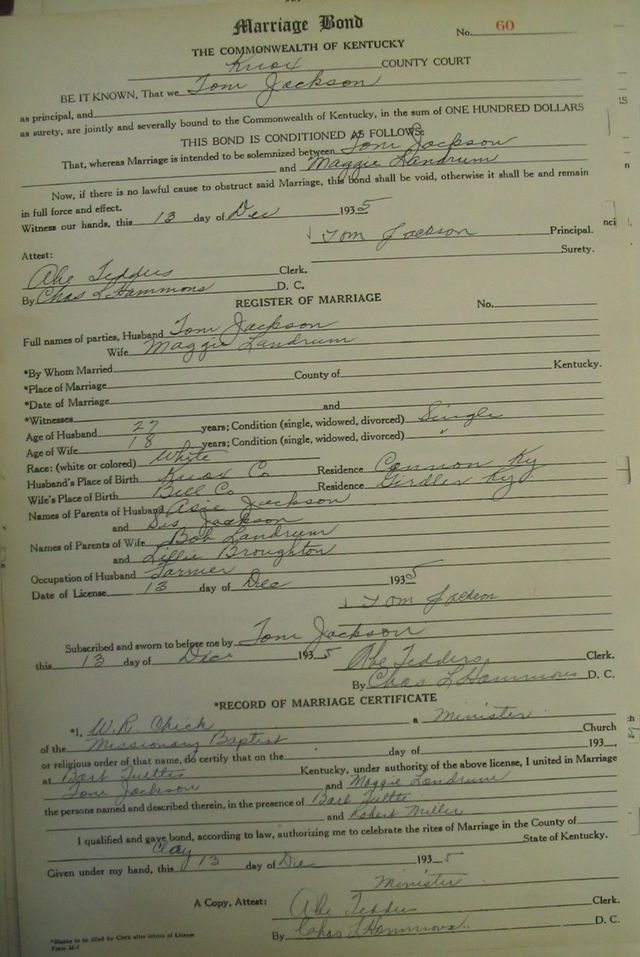 Marriage Bond
No. 60
THE COMMONWEALTH OF KENTUCKY
Knox COUNTY COURT
BE IT KNOWN, That we Tom Jackson
as principal, and
as surety, are jointly and severally bound to the Commonwealth of Kentucky, in the sum of ONE HUNDRED DOLLARS
THIS BOND IS CONDITIONED AS FOLLOWS:
That, whereas Marriage is intended to be solemnized between Tom Jackson
and Maggie Landrum
Now, if there is no lawful cause to obstruct said Marriage, this bond shall be void, otherwise it shall be and remain
in full force and effect.
Witness our hands, this 13 day of Dec 1935
Tom Jackson Principal.
Attest: Surety.
Abe Tedders Clerk.
By Chas L Hammons D. C.
REGISTER OF MARRIAGE
No.
Full names of parties, Husband Tom Jackson
Wife Maggie Landrum
*By Whom Married
*Place of Marriage County of Kentucky.
*Date of Marriage
*Witnesses and
Age of Husband 27 years; Condition (single, widowed, divorced) Single
Age of Wife 18 years; Condition (single, widowed, divorced) "
Race: (white or colored) White
Husband's Place of Birth Knox Co Residence Cannon Ky
Wife's Place of Birth Bell Co Residence Girdler Ky
Names of Parents of Husband Asie Jackson
and Sis Jackson
Names of Parents of Wife Bob Landrum
and Lillie Broughton
Occupation of Husband Farmer
Date of License 13 day of Dec 1935
Tom Jackson
Subscribed and sworn to before me by Tom Jackson
this 13 day of Dec 1935
Abe Tedders Clerk.
By Chas L Hammons D. C.
*RECORD OF MARRIAGE CERTIFICATE
*I, W.R. Chick a Minister
of the Missionary Baptist Church
or religious order of that name, do certify that on the day of 193
at Basb Tuttle Kentucky, under authority of the above license, I united in Marriage
Tom Jackson and Maggie Landrum
the persons named and described therein, in the presence of Basb Tuttle
and Robert Miller
I qualified and gave bond, according to law, authorizing me to celebrate the rites of Marriage in the County of
Clay State of Kentucky.
Given under my hand, this 13 day of Dec 1935
Minister
A Copy, Attest: Abe Tedders Clerk.
By Chas L Hammons D. C.
*Blanks to be filled by Clerk after return of License